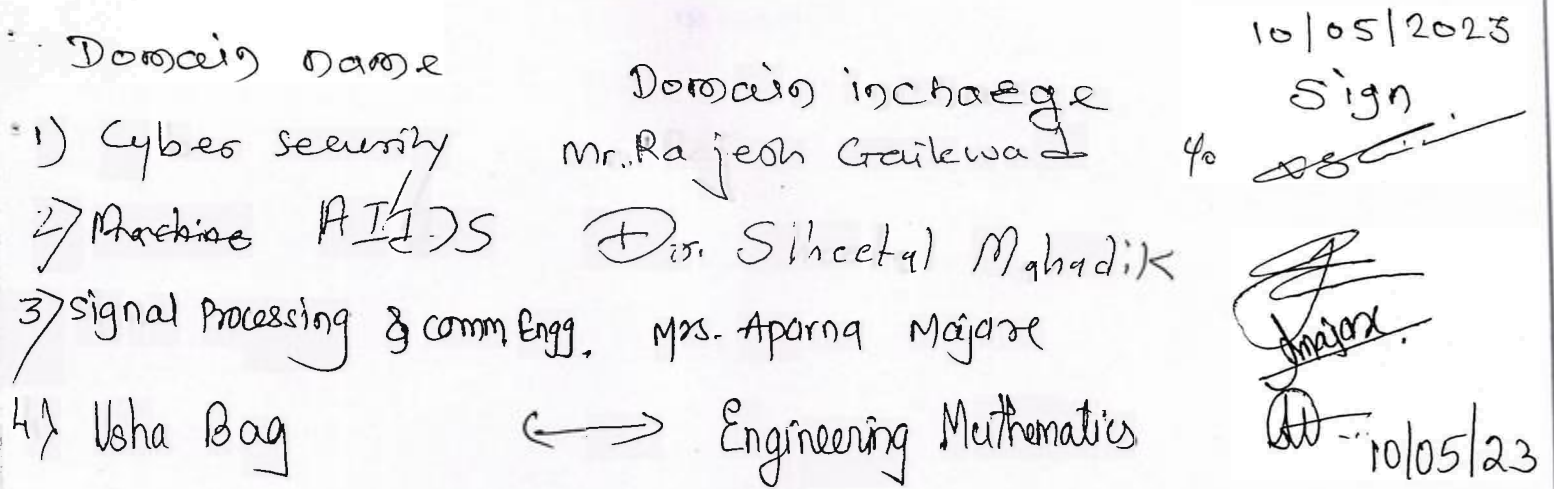 10/05/2023
Domain name Domain incharge Sign
1) Cyber security Mr. Rajesh Gaikwad
2) Machine AI/DS Dr. Sheetal Mahadik
3) Signal Processing & comm Engg. Mrs. Aparna Majare
4) Usha Bag ↔ Engineering Mathematics 10/05/23